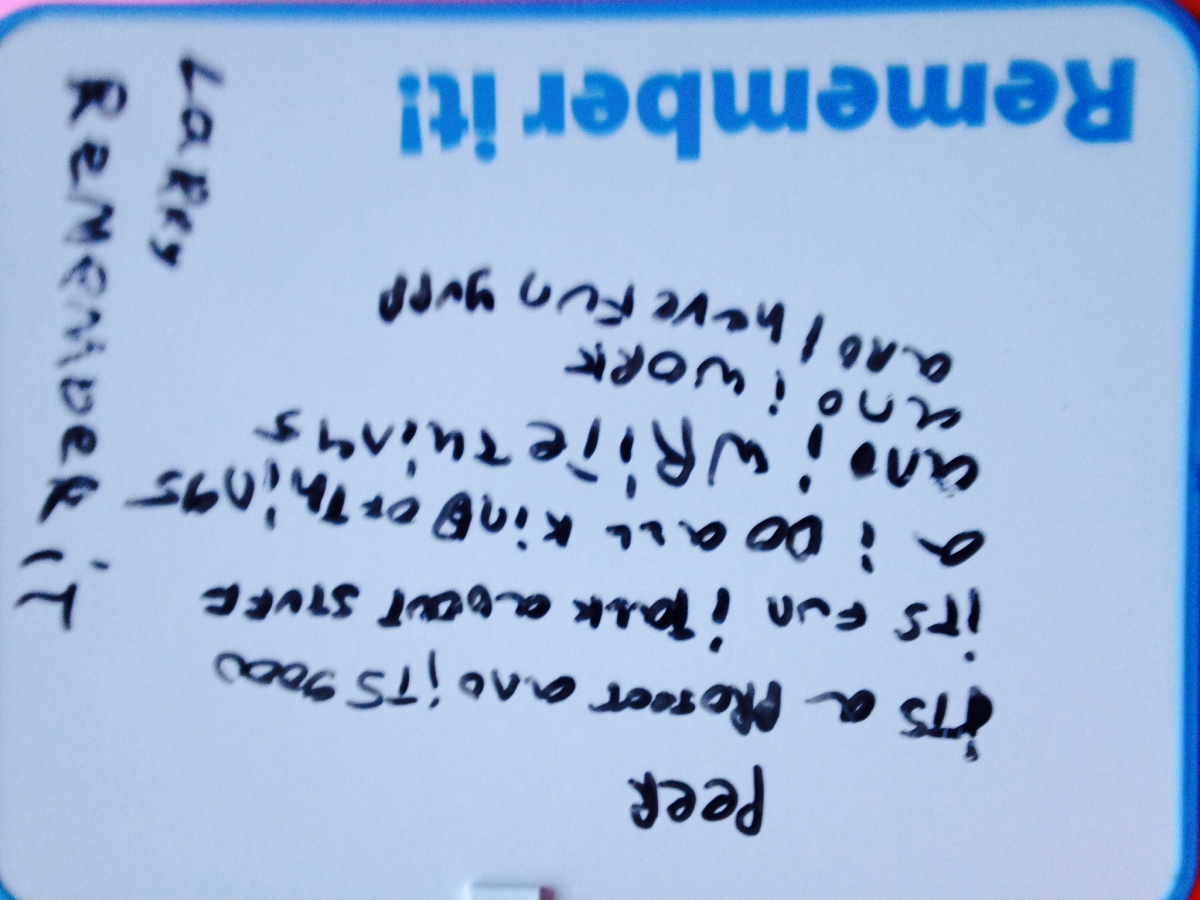 PeeR
iTS a PRoJect and iTS good
iTS Fun i TaLK about STUFF
a i DO aLL KinD oF Things
and i WRiTe Things
and i WORK
and I have Fun yupp
Remember it!
LaRRy
ReMeMbeR iT